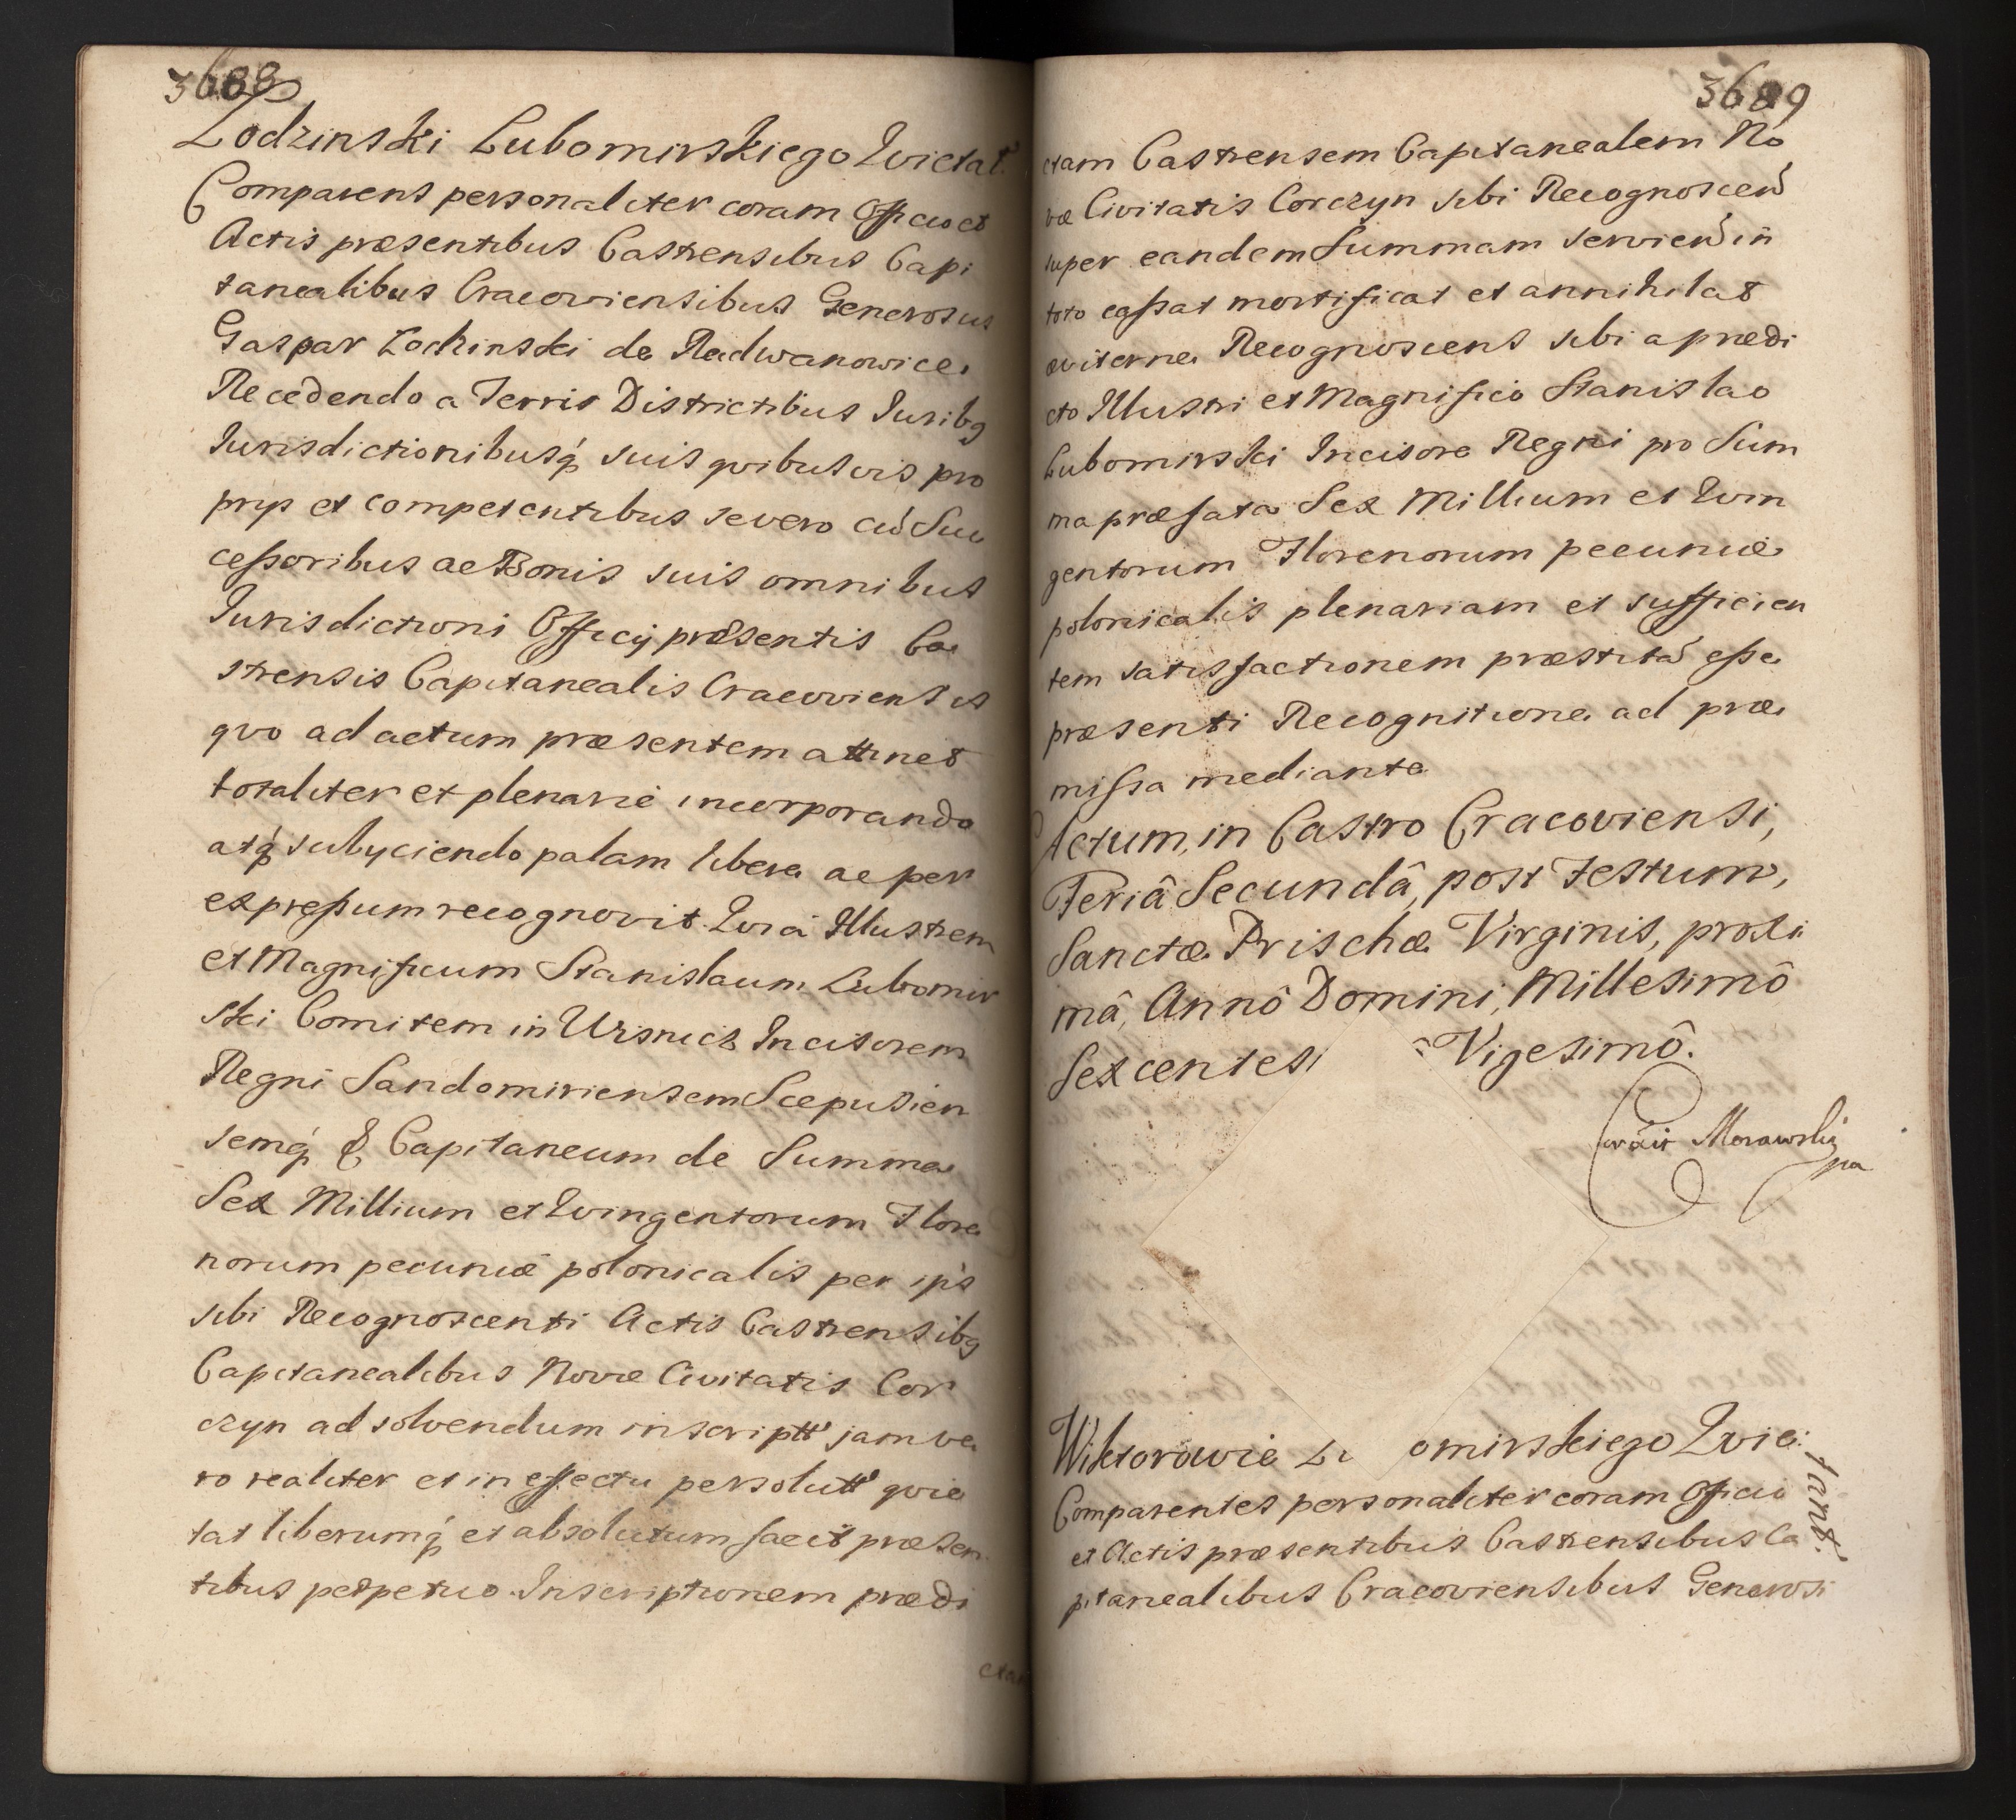 3688
Zodzinski Lubomirskiego Qvietat
Comparens personaliter coram Officio et
Actis præsentibus Castrensibus Capi
tanealibus Cracoviensibus Generosus
Gaspar Zodzinski de Radwanowice
Recedendo a Terris Districtibus Juribq
Jurisdictionibusq́ suis qvibusvis pro
prys et competentibus se vero cū Suc
ceßoribus ac Bonis suis omnibus
Jurisdictioni Officÿ præsentis Ca
strensis Capitanealis Cracoviensis
qvo ad actum præsentem attinet
totaliter et plenarie incorporando
atq́ subyciendo palam libere ac per
expreßum recognovit. Qvia Illustrem
et Magnificum Stanislaum Lubomir
ski Comitem in Wisnicz Incisorem
Regni Sandomiriensem Scepusien
semq́ & Capitaneum de Summa
Sex Millium et Qvingentorum Flore
norum pecuniæ polonicalis per ips
sibi Recognoscenti Actis Castrensibq
Capitanealibus Novæ Civitatis Cor
czyn ad solvendum inscriptt jam ve
ro realiter et in effectu persolutt qvie
tat liberumq́ et absolutum facit præsen
tibus perpetuo. Inscriptionem prædi
ctam
3689
ctam Castrensem Capitanealem No
væ Civitatis Corczyn sibi Recognoscen
super eandem Summam servien in
toto caßat mortificat et annihilat
æviterne Recognoscens sibi a prædi
cto Illustri et Magnifico Stanislao
Lubomirski Incisore Regni pro Sum
ma præfata Sex Millium et Qvin
gentorum Florenorum pecuniæ
polonicalis plenariam et sufficien
tem satisfactionem præstitā eße
præsenti Recognitione ad præ
mißa mediante
Actum, in Castro Cracoviensi,
Feriâ Secundâ, post Festum,
Sanctæ Prischæ Virginis, proxi
mâ, Annô Domini, Millesimô
Sexcentesi Vigesimô.
Morawski
pa
Wiktorowie Lu omirskiego Qvie:
tant.
Comparentes personaliter coram Officio
et Actis præsentibus Castrensibus Ca
pitanealibus Cracoviensibus Generosi